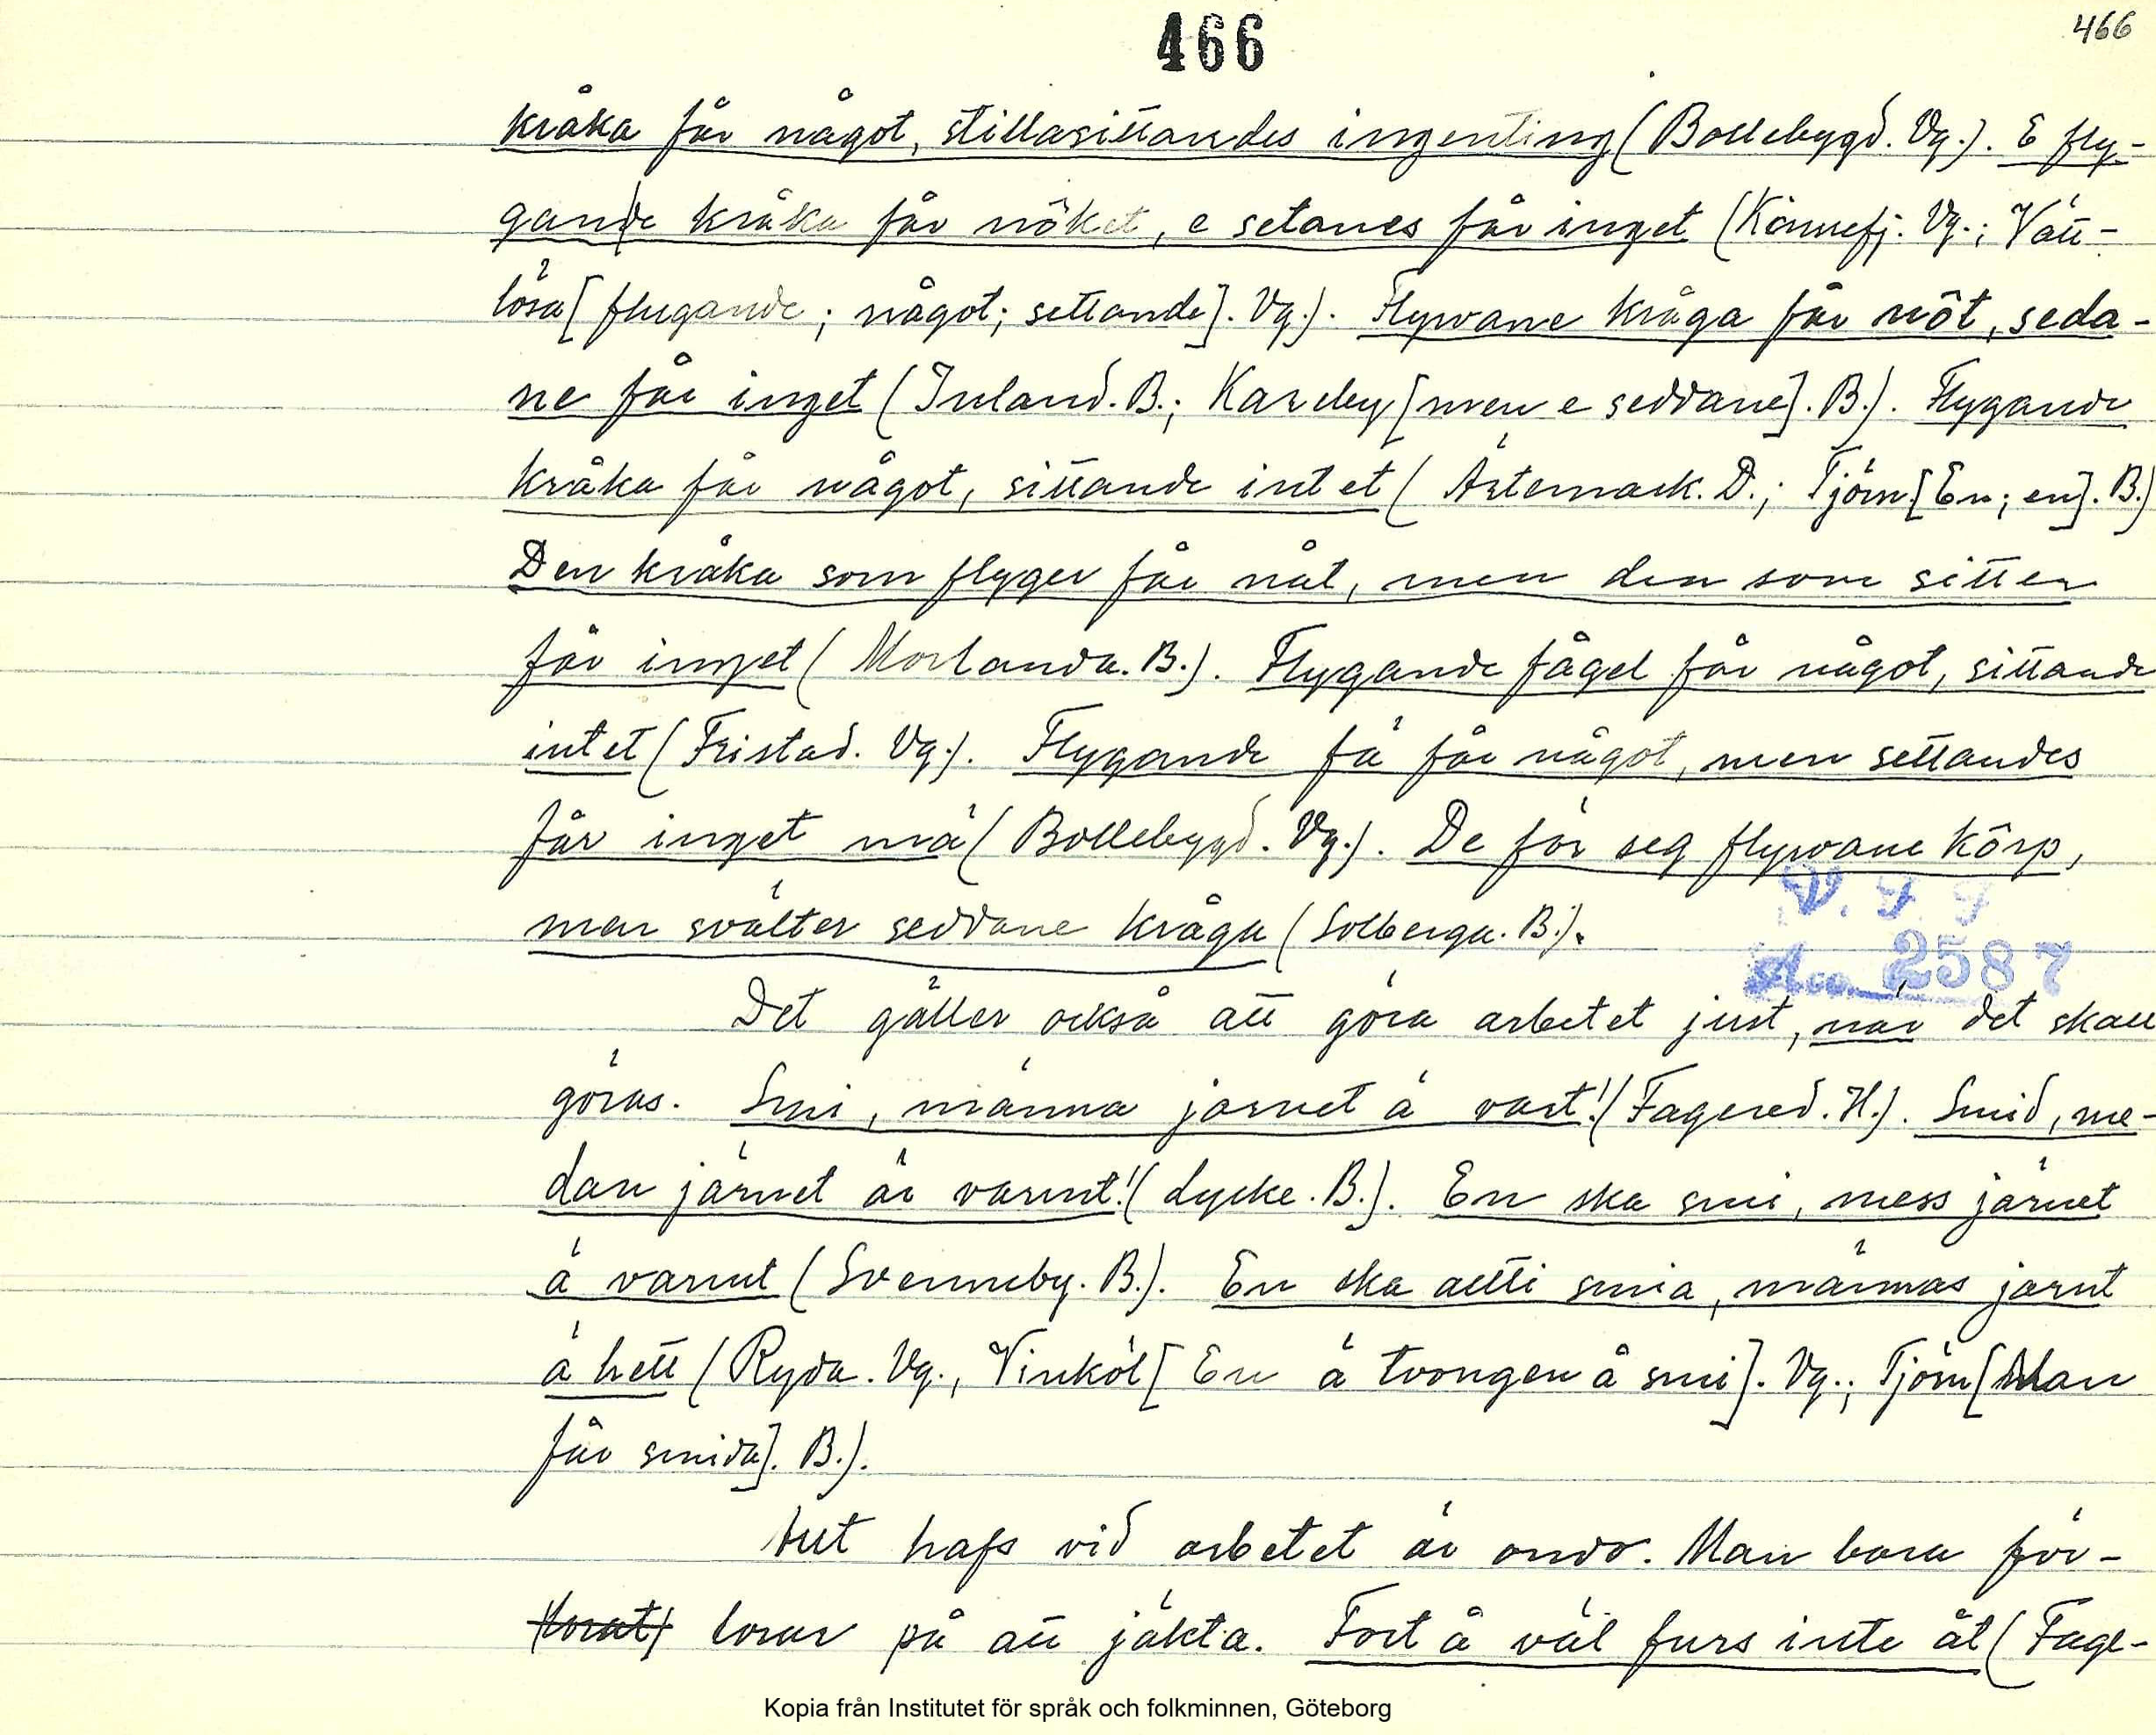 466
466
kråka får något, stillasittandes ingenting (Bollebygd. Vg.). E fly-
gande kråka får nöket, e setanes får inget (Könnefj. Vg.; Vätt-
lösa [flugande; något; settande]. Vg.). Flyvane kråga får nôt, seda-
ne får inget (Inland. B.; Kareby [men e seddane]. B.). Flygande
kråka får något, sittande intet (Ärtemark. D.; Tjörn [En; en]. B.)
Den kråka som flyger får nåt, men den som sitter
får inget (Morlanda. B.). Flygande fågel får något, sittande
intet (Fristad. Vg.). Flygande fä får något, men settandes
får inget mä (Bollebygd. Vg.). De för seg flyvane körp,
men svälter seddane kråga (Solberga. B.).
V. F. F
Acc. 2587
Det gäller också att göra arbetet just, när det skall
göras. Smi, männa jarnet ä vart! (Fagered. H.). Smid, me-
dan järnet är varmt! (Lycke. B.). En ska smi, mess järnet
ä varmt (Svenneby. B.). En ska allti smia, männas jarnt
ä hett (Ryda. Vg., Vinköl [En ä tvongen å smi]. Vg.; Tjörn [Man
får smida]. B.).
Allt hafs vid arbetet är ondo. Man bara för-
lorar på att jäkta. Fort å väl furs inte åt (Fage-
Kopia från Institutet för språk och folkminnen, Göteborg